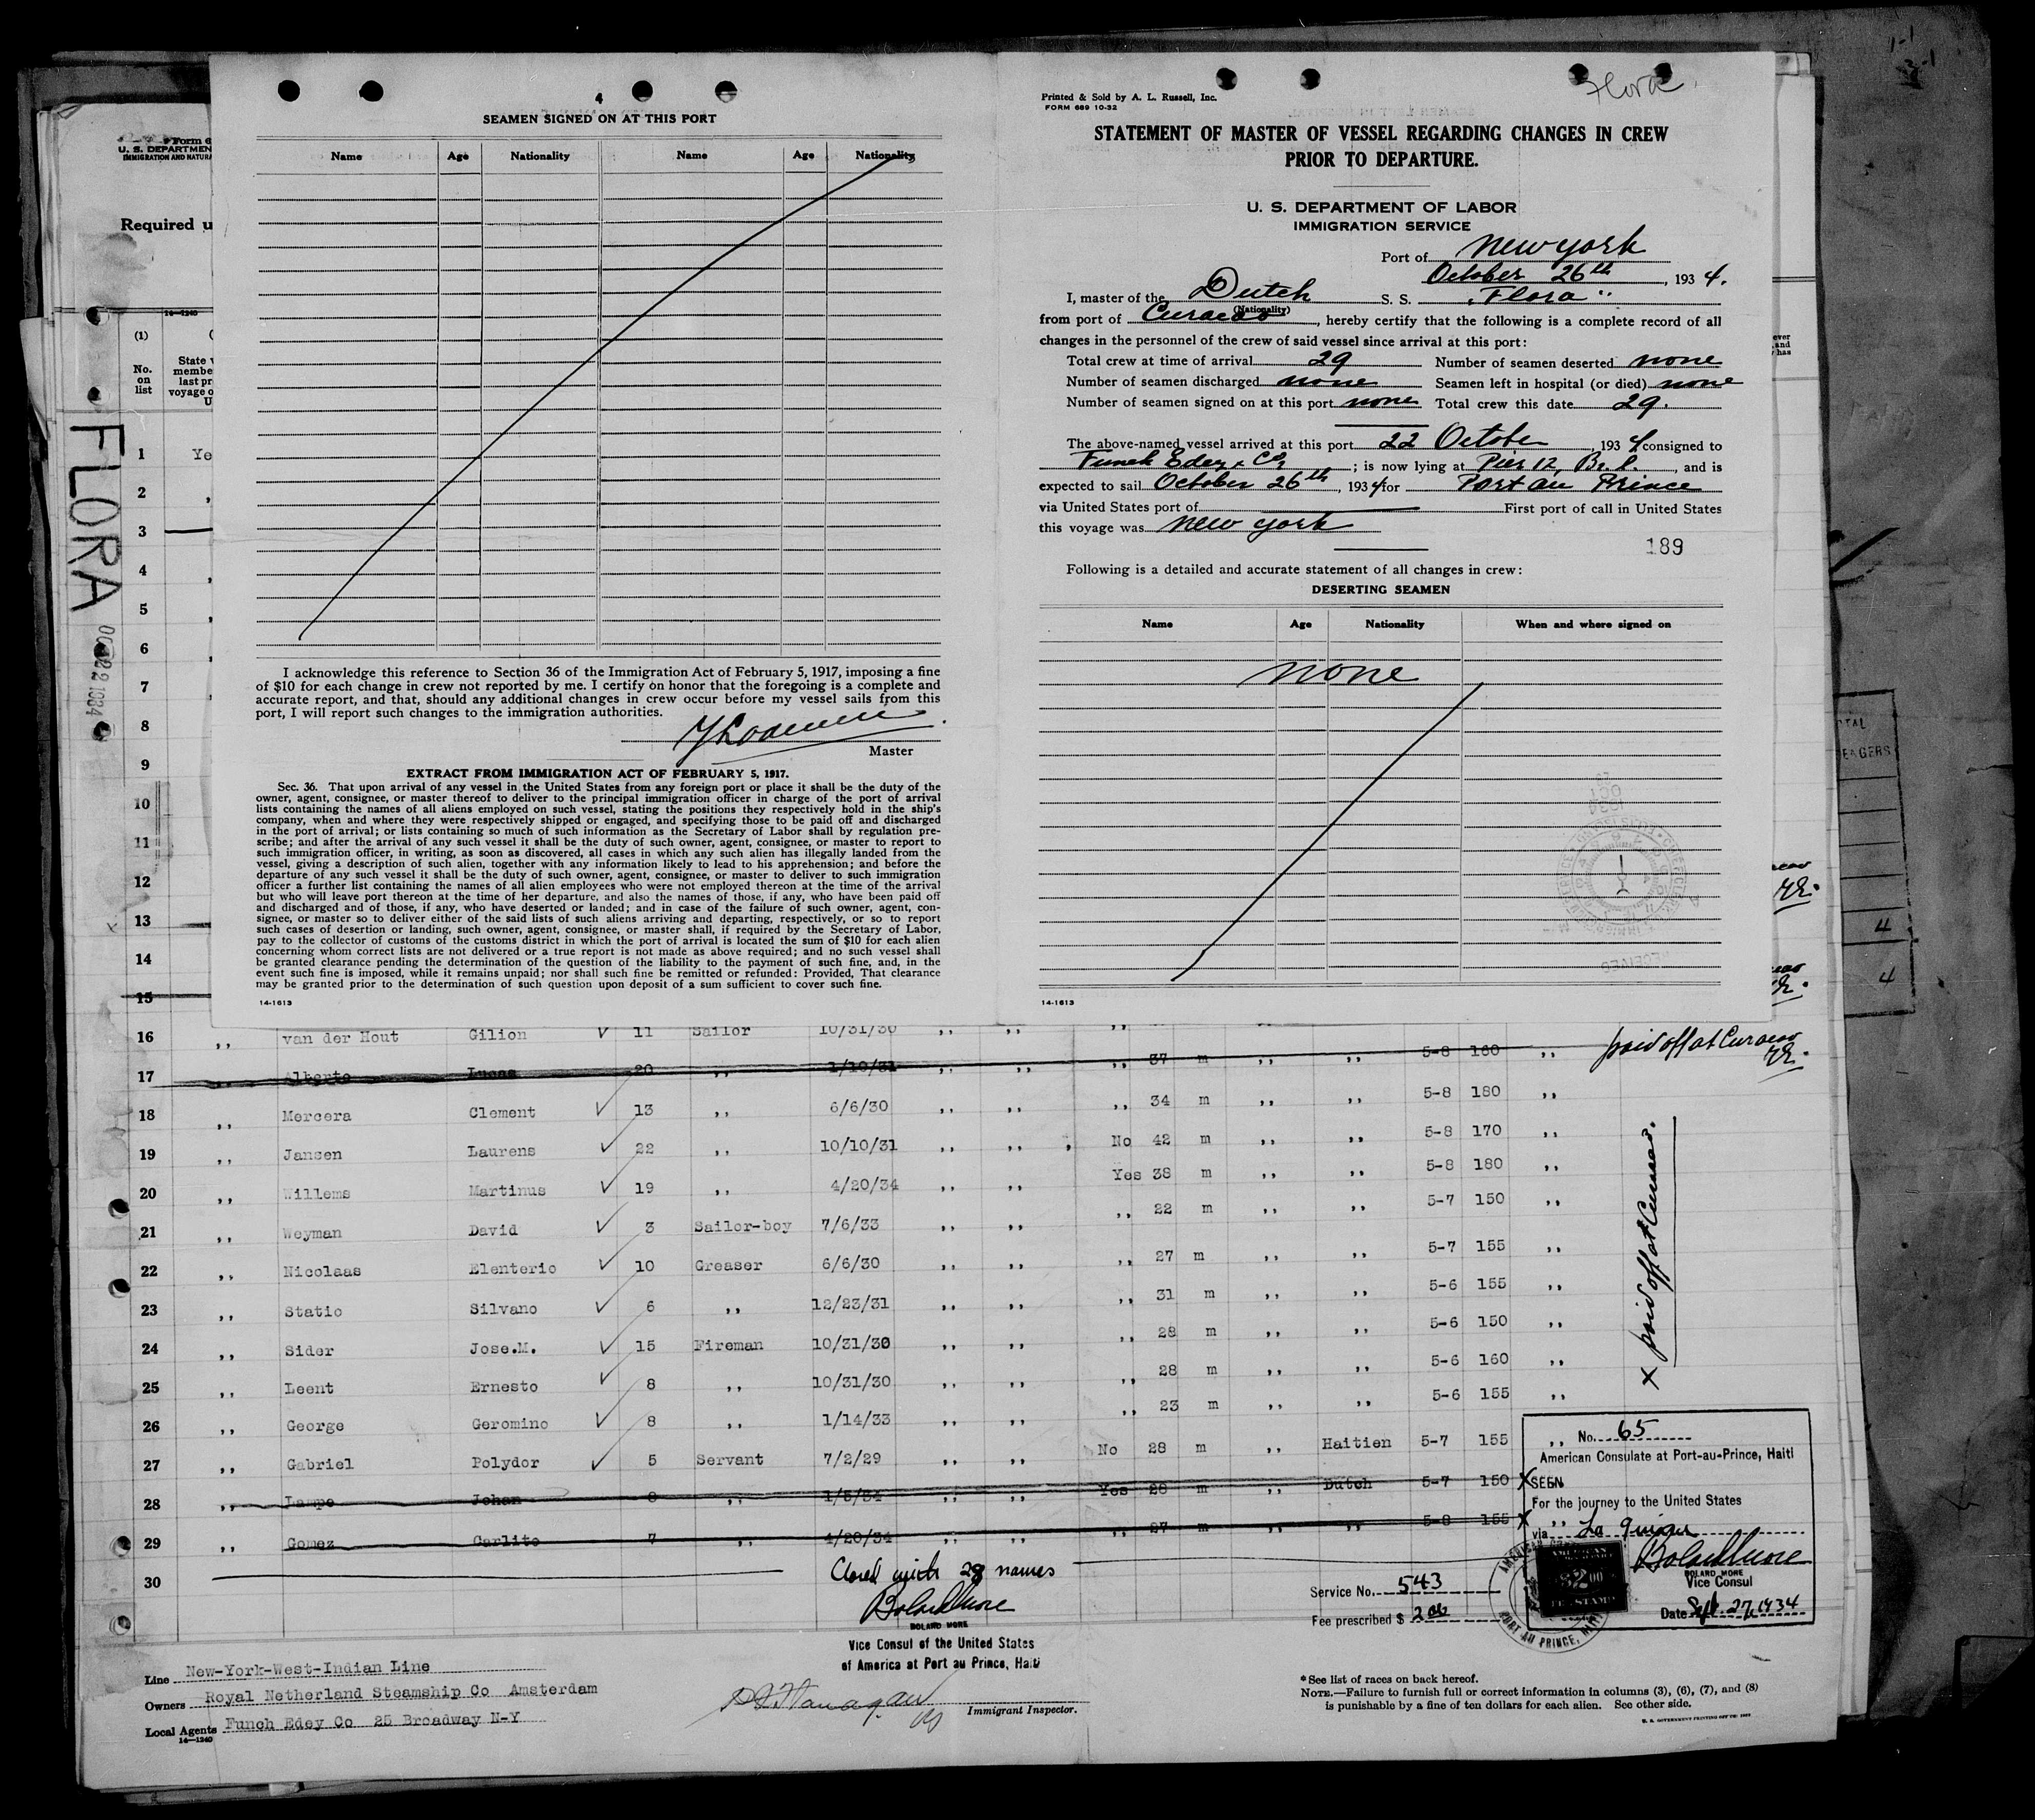 Flora
4
SEAMEN SIGNED ON AT THIS PORT
Name Age Nationality Name Age Nationality
I acknowledge this reference to Section 36 of the Immigration Act of February 5, 1917, imposing a fine
of $10 for each change in crew not reported by me. I certify on honor that the foregoing is a complete and
accurate report, and that, should any additional changes in crew occur before my vessel sails from this
port, I will report such changes to the immigration authorities.
Master
EXTRACT FROM IMMIGRATION ACT OF FEBRUARY 5, 1917.
Sec. 36. That upon arrival of any vessel in the United States from any foreign port or place it shall be the duty of the
owner, agent, consignee, or master thereof to deliver to the principal immigration officer in charge of the port of arrival
lists containing the names of all aliens employed on such vessel, stating the positions they respectively hold in the ship's
company, when and where they were respectively shipped or engaged, and specifying those to be paid off and discharged
in the port of arrival; or lists containing so much of such information as the Secretary of Labor shall by regulation pre-
scribe; and after the arrival of any such vessel it shall be the duty of such owner, agent, consignee, or master to report to
such immigration officer, in writing, as soon as discovered, all cases in which any such alien has illegally landed from the
vessel, giving a description of such alien, together with any information likely to lead to his apprehension; and before the
departure of any such vessel it shall be the duty of such owner, agent, consignee, or master to deliver to such immigration
officer a further list containing the names of all alien employees who were not employed thereon at the time of the arrival
but who will leave port thereon at the time of her departure, and also the names of those, if any, who have been paid off
and discharged and of those, if any, who have deserted or landed; and in case of the failure of such owner, agent, con-
signee, or master so to deliver either of the said lists of such aliens arriving and departing, respectively, or so to report
such cases of desertion or landing, such owner, agent, consignee, or master shall, if required by the Secretary of Labor,
pay to the collector of customs of the customs district in which the port of arrival is located the sum of $10 for each alien
concerning whom correct lists are not delivered or a true report is not made as above required; and no such vessel shall
be granted clearance pending the determination of the question of the liability to the payment of such fine, and, in the
event such fine is imposed, while it remains unpaid; nor shall such fine be remitted or refunded: Provided, That clearance
may be granted prior to the determination of such question upon deposit of a sum sufficient to cover such fine.
14-1613
Printed & Sold by A. L. Russell, Inc.
FORM 689 10-32
STATEMENT OF MASTER OF VESSEL REGARDING CHANGES IN CREW
PRIOR TO DEPARTURE.
U. S. DEPARTMENT OF LABOR
IMMIGRATION SERVICE
Port of New York
October 26th, 1934.
I, master of the Dutch S. S. "Flora"
(Nationality)
from port of Curacao, hereby certify that the following is a complete record of all
changes in the personnel of the crew of said vessel since arrival at this port:
Total crew at time of arrival 29 Number of seamen deserted none
Number of seamen discharged none Seamen left in hospital (or died) none
Number of seamen signed on at this port none Total crew this date 29.
The above-named vessel arrived at this port 22 October, 1934 consigned to
Funch Edey & Co; is now lying at Pier 12, Br. l., and is
expected to sail October 26th, 1934 for Port au Prince
via United States port of First port of call in United States
this voyage was New York
189
Following is a detailed and accurate statement of all changes in crew:
DESERTING SEAMEN
Name Age Nationality When and where signed on
none
14-1613
U. S. DEPARTMEN
IMMIGRATION AND NATURA
Required u
14-1240
(1)
No. on list
State
membe
last pr
voyage o
U
FLORA
1 Ye
2
3
4
5
6
7
8
9
10
11
12
13
14
15
16 ,, van der Hout Gilion ✓ 11 Sailor 10/31/30 ,, ,,
17 Alberto Lucas 20 ,, 1/10/31 ,, ,, ,, 37 m ,, ,, 5-8 160 ,, paid off at Curacao
18 ,, Mercera Clement ✓ 13 ,, 6/6/30 ,, ,, ,, 34 m ,, ,, 5-8 180 ,,
19 ,, Jansen Laurens ✓ 22 ,, 10/10/31 ,, ,, No 42 m ,, ,, 5-8 170 ,,
20 ,, Willems Martinus ✓ 19 ,, 4/20/34 ,, ,, Yes 38 m ,, ,, 5-8 180 ,,
21 ,, Weyman David ✓ 3 Sailor-boy 7/6/33 ,, ,, ,, 22 m ,, ,, 5-7 150 ,,
22 ,, Nicolaas Elenterio ✓ 10 Greaser 6/6/30 ,, ,, ,, 27 m ,, ,, 5-7 155 ,,
23 ,, Statio Silvano ✓ 6 ,, 12/23/31 ,, ,, ,, 31 m ,, ,, 5-6 155 ,,
24 ,, Sider Jose.M. ✓ 15 Fireman 10/31/30 ,, ,, ,, 28 m ,, ,, 5-6 150 ,,
25 ,, Leent Ernesto ✓ 8 ,, 10/31/30 ,, ,, ,, 28 m ,, ,, 5-6 160 ,,
26 ,, George Geromino ✓ 8 ,, 1/14/33 ,, ,, ,, 23 m ,, ,, 5-6 155 ,,
27 ,, Gabriel Polydor ✓ 5 Servant 7/2/29 ,, ,, No 28 m ,, Haitien 5-7 155 ,,
28 ,, Lampe Johan 8 ,, 1/5/34 ,, ,, Yes 28 m ,, Dutch 5-7 150 X
29 ,, Gomez Carlito 7 ,, 4/20/34 ,, ,, ,, 27 m ,, ,, 5-8 155 X ,,
30
X paid off at Curacao.
Closed with 28 names
BOLARD MORE
Vice Consul of the United States
of America at Port au Prince, Haiti
Immigrant Inspector.
No. 65
American Consulate at Port-au-Prince, Haiti
SEEN
For the journey to the United States
via La Guaira
BOLARD MORE
Vice Consul
Date Sept. 27, 1934
Service No. 543
Fee prescribed $ 2.00
AMERICAN
PORT AU PRINCE, HAITI
Line New-York-West-Indian Line
Owners Royal Netherland Steamship Co Amsterdam
Local Agents Funch Edey Co 25 Broadway N-Y
14-1240
* See list of races on back hereof.
NOTE.—Failure to furnish full or correct information in columns (3), (6), (7), and (8)
is punishable by a fine of ten dollars for each alien. See other side.
4
4